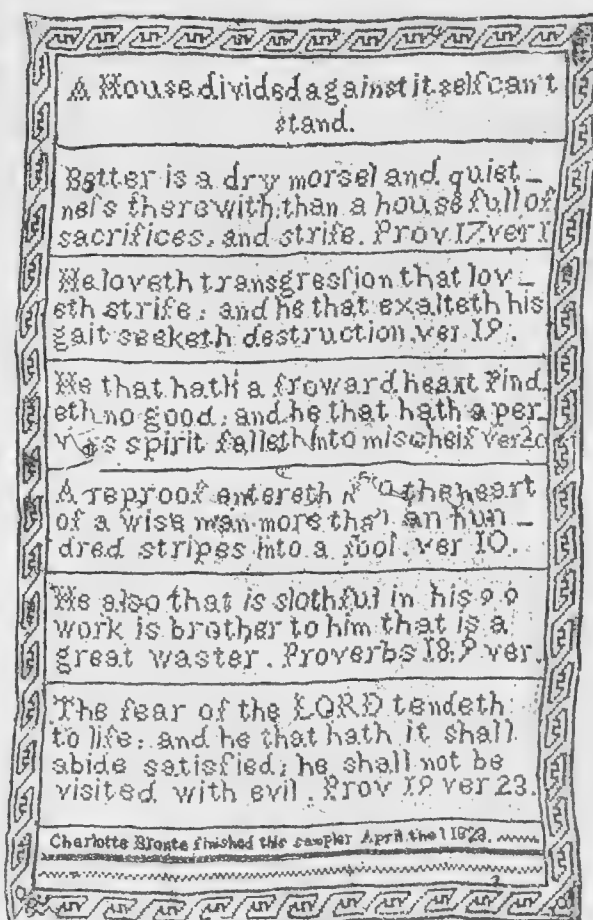 A House divided against it self can't
stand.
Better is a dry morsel and quiet_
neſs therewith: than a house full of
sacrifices, and strife. Prov 17. ver 1
He loveth transgresſion that lov_
eth strife: and he that exalteth his
gait seeketh destruction, ver 19.
He that hath a froward heart find_
eth no good: and he that hath a per_
spirit falleth into mischeif ver 20
A reproof entereth into the heart
of a wise man more than an hun_
dred stripes into a fool. ver 10.
He also that is slothful in his
work is brother to him that is a
great waster. Proverbs 18.9 ver.
The fear of the LORD tendeth
to life: and he that hath it shall
abide satisfied; he shall not be
visited with evil. Prov 19 ver 23.
Charlotte Bronte finished this sampler April the 1 1828.